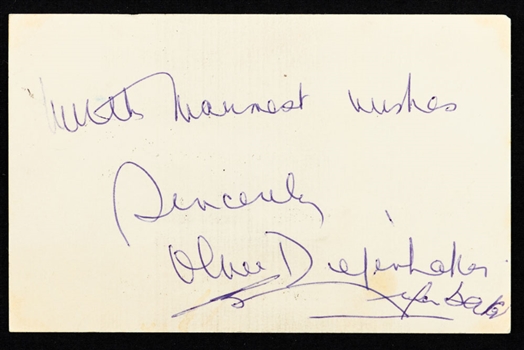 With Warmest wishes
Sincerely
Olive Diefenbaker